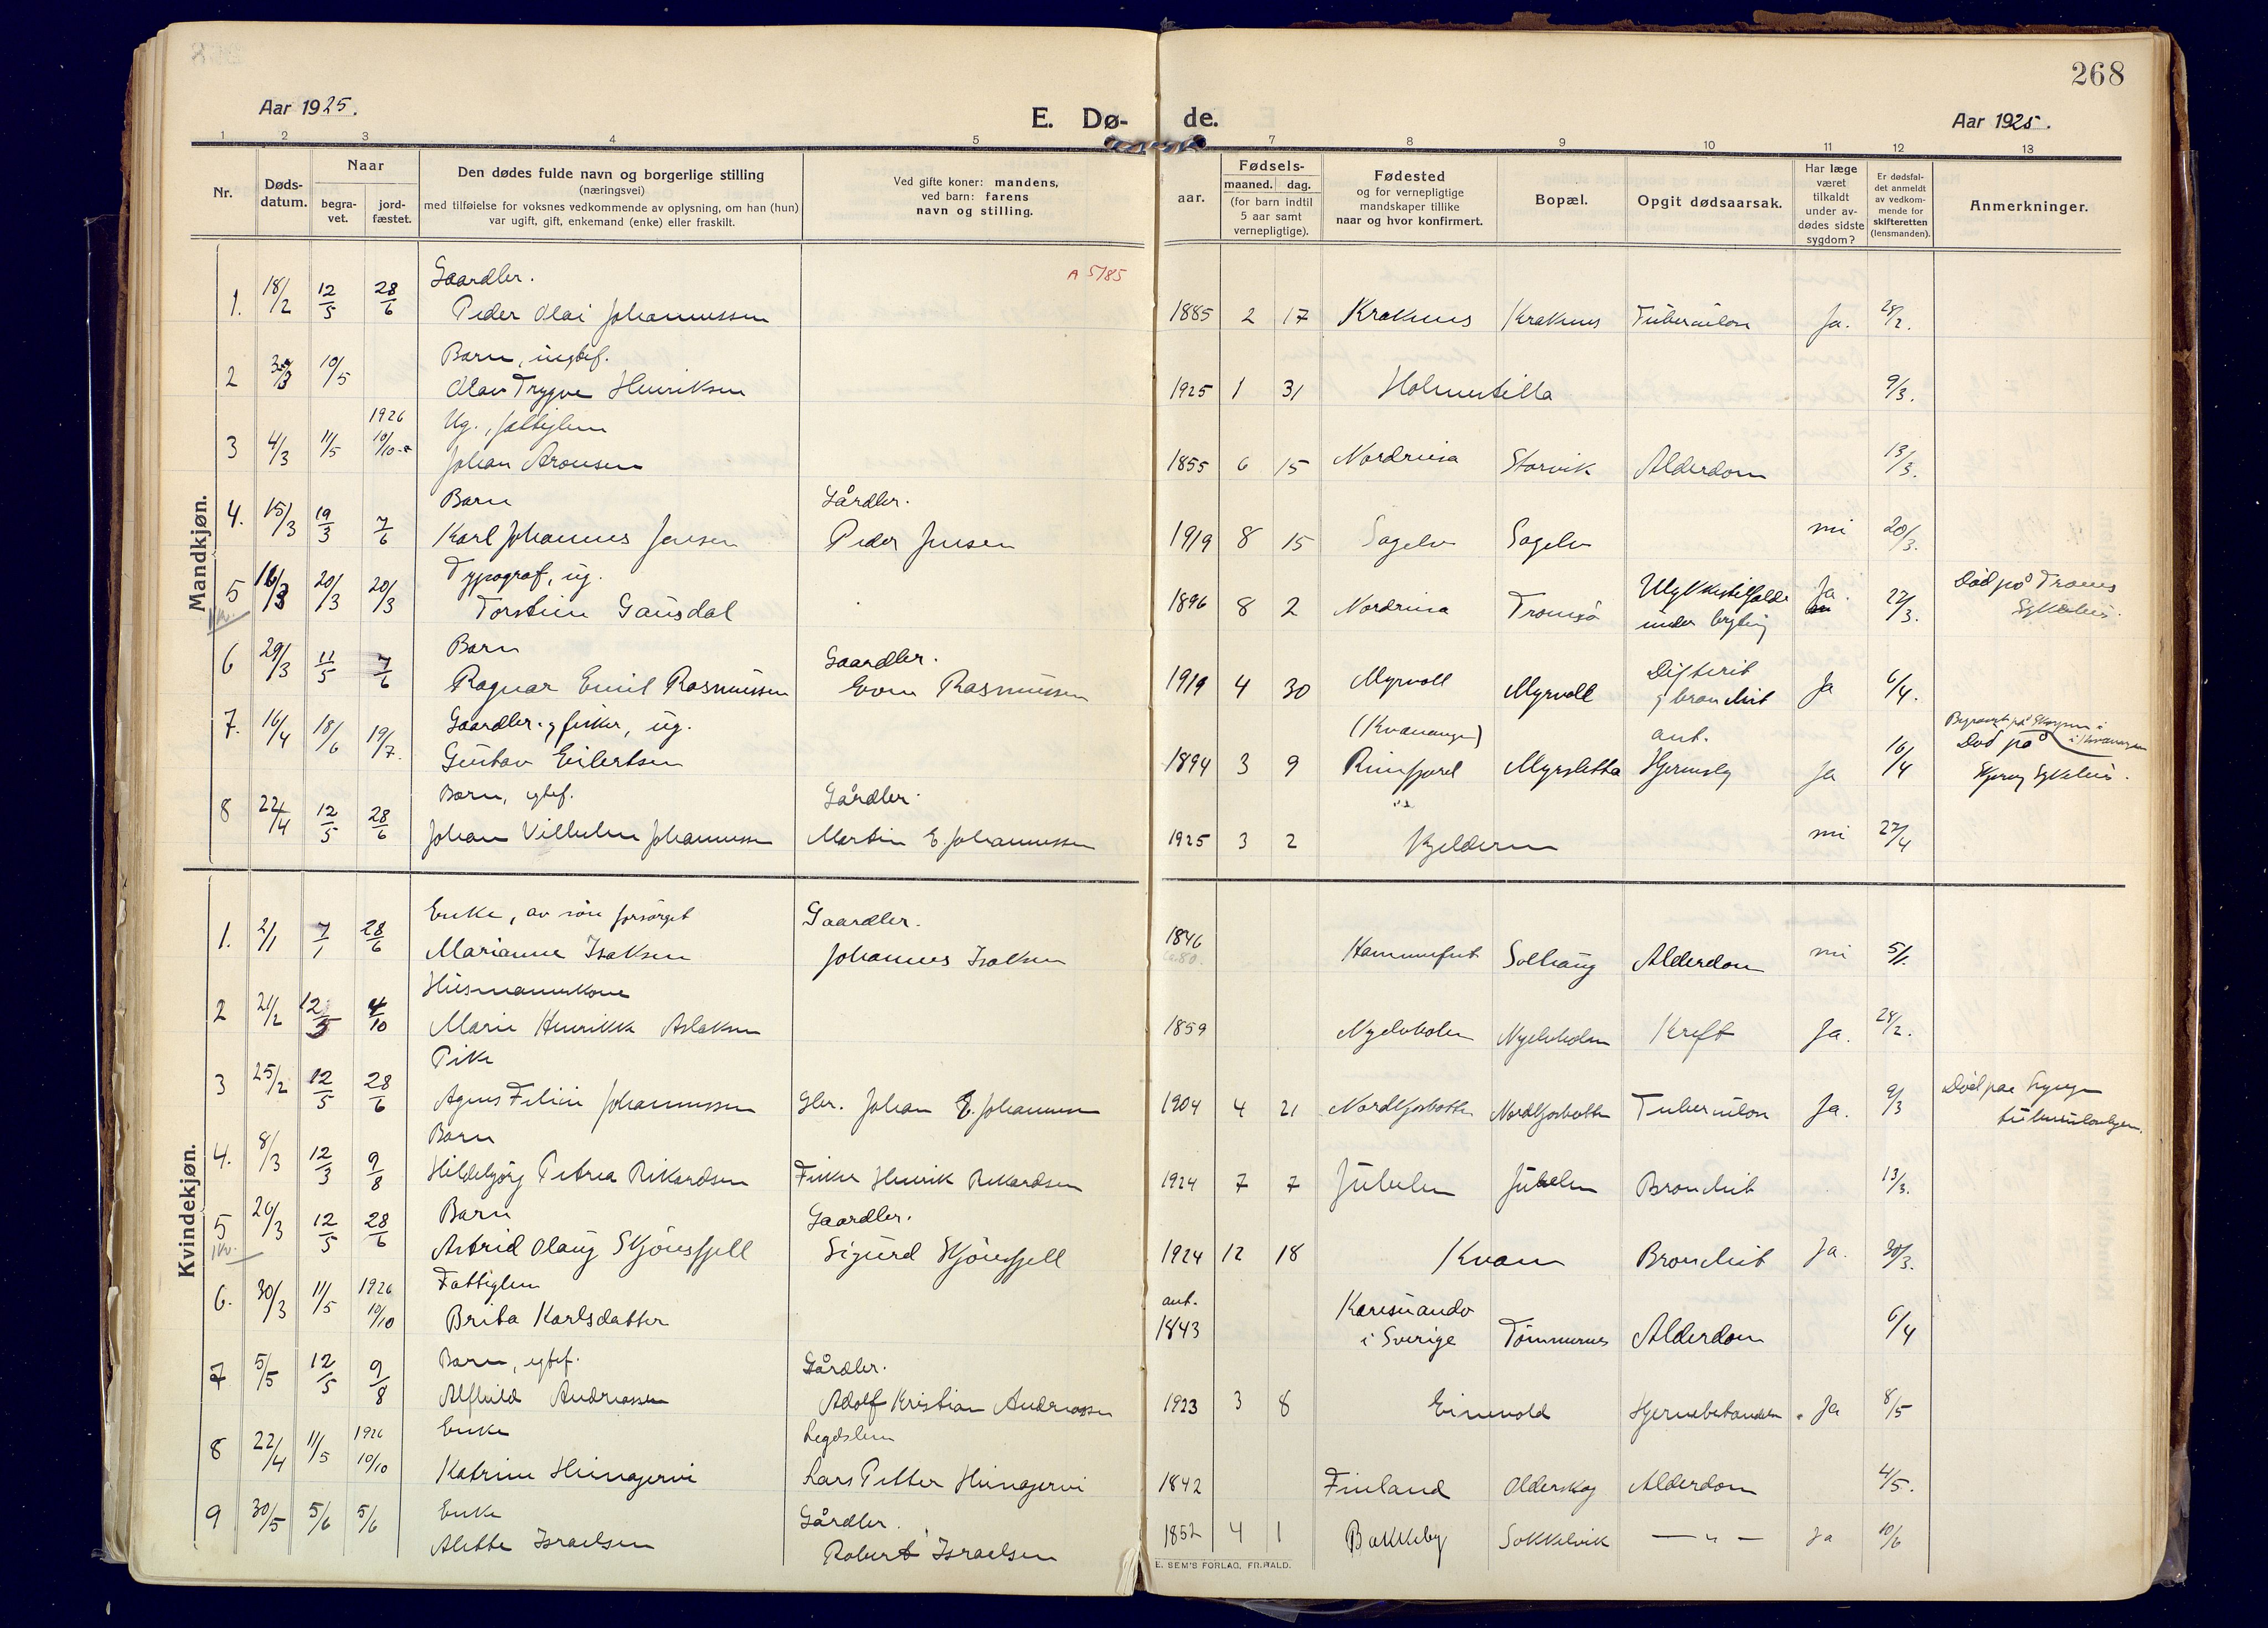 268
Aar 1925.
E. Dø- de.
Aar 1925.
1 2 3 4 5 7 8 9 10 11 12 13
Nr.
Døds-
datum.
Naar
begra-
vet.
jord-
fæstet.
Den dødes fulde navn og borgerlige stilling
(næringsvei)
med tilføielse for voksnes vedkommende av oplysning, om han (hun)
var ugift, gift, enkemand (enke) eller fraskilt.
Ved gifte koner: mandens,
ved barn: farens
navn og stilling.
aar.
Fødsels-
maaned. dag.
(for barn indtil
5 aar samt
vernepligtige).
Fødested
og for vernepligtige
mandskaper tillike
naar og hvor konfirmert.
Bopæl.
Opgit dødsaarsak.
Har læge
været
tilkaldt
under av-
dødes sidste
sygdom?
Er dødsfal-
det anmeldt
av vedkom-
mende for
skifteretten
(lensmanden).
Anmerkninger.
Mandkjøn.
A 5185
Gaardbr.
1. 18/2 12/5 28/6 Peder Olai Johannessen 1885 2 17 Kraknes Kraknes Tuberkulose Ja. 28/2.
Barn, uegtef.
2 10/5 Olav Trygve Henriksen 1925 1 31 Holmestilla 9/3.
1926 Ug., fattiglem
3 4/3 11/5 10/10 Johan Aronsen 1855 6 15 Nordreisa Storvik Alderdom 13/3.
Barn Gårdbr.
4. 15/3 19/3 7/6 Karl Johannes Jensen Peder Jensen 1919 8 15 Sagelv Sagelv nei 20/3.
Typograf, ug.
5 16/3 20/3 20/3 Torstein Gausdal 1896 8 2 Nordreisa Tromsö Ulykkestilfælde under Ja. 22/3. Död på Troms Sykehus.
Barn Gaardbr.
6 29/3 11/5 7/6 Ragnar Emil Rasmussen Even Rasmussen 1919 4 30 Myrvoll Myrvoll Difterit og bronchit Ja 6/4.
Gaardbr. og fisker, ug. (Kvænangen) ant.
7. 16/4 18/6 19/7. Gustav Eilertsen 1894 3 9 Myrsletta Ja 16/4 Död på Sykehus.
Barn, egtef. Gårdbr.
8 22/4 12/5 28/6 Johan Vilhelm Johannessen Martin E. Johannessen 1925 3 2 Kjelderen nei 27/4
Kvindekjøn.
Enke, av sön forsörget Gaardbr.
1. 2/1 7/1 28/6 Marianne Isaksen Johannes Isaksen 1846 Hammerfest Solhaug Alderdom nei 5/1.
ca 80.
Husmannskone
2 21/2 12/5 4/10 Marie Henrikke Aslaksen 1859 Nyelvholm Nyelvholm Kreft Ja. 28/2.
Pike
3 25/2 12/5 28/6 Agnes Johannessen Gbr. Johan E. Johannessen 1904 4 21 Nordkjosbotten Nordkjosbotten Tuberkulose Ja. 9/3 Död paa Lyngen
Barn
4. 8/3 12/3 9/8 Hildebjörg Petrea Rikardsen Fisker Henrik Rikardsen 1924 7 7 Jukelen Jukelen Bronchit 13/3.
Barn Gaardbr.
5 26/3 12/5 28/6 Astrid Olaug Skjönsfjell Sigurd Skjönsfjell 1924 12 18 Kvam Bronchit Ja. 30/3.
1926 Fattiglem ant.
6. 30/3 11/5 10/10 Brita Karlsdatter 1843 Karesuando i Sverige Tömmernes Alderdom 6/4
Barn, egtef. Gårdbr.
7 5/5 12/5 9/8 Alfhild Andreassen Adolf Kristian Andreassen 1923 3 8 Einevold Hjernebetændelse Ja 8/5
1926 Enke Legdslem
8 22/4 11/5 10/10 Katrine Lars Petter 1842 Finland Olderskog Alderdom 4/5.
Enke Gårdbr.
9 30/5 5/6 5/6 Alette Israelsen Robert Israelsen 1852 4 1 Bakkeby Sokkelvik — " — Ja 10/6
E. SEM'S FORLAG, FR.HALD.